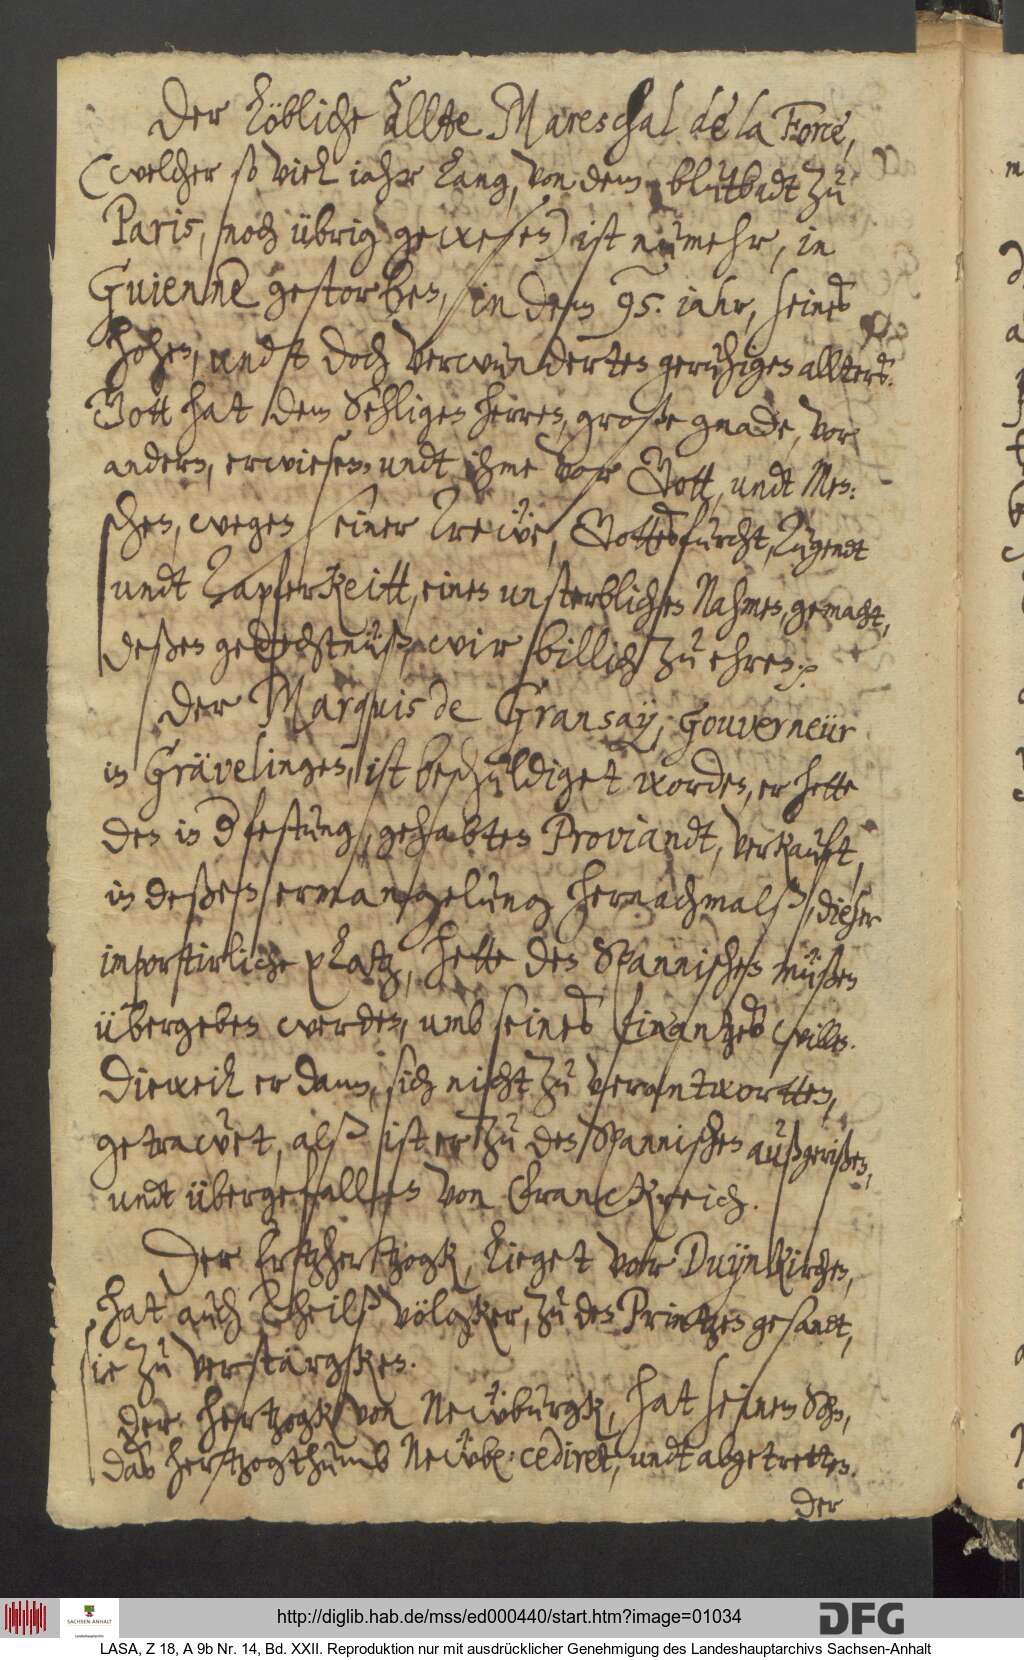 Der löbliche allte Mareschal de la Force,
(welcher so viel iahr lang, von dem blutbadt zu
Paris, noch übrig gewesen) ist numehr, in
Guienne gestorben, in dem 95. iahr, seines
hohen, undt doch verwundertes geruhiges allters.
Gott hat dem Sehligen herren, große gnade, vor
andern, erwiesen, undt ihme vor Gott, undt Men:
schen, wegen seiner Trewe, Gottesfurcht, Tugendt
undt Tapferkeitt, einen unsterblichen Nahmen, gemacht,
deßen gedechtnüß, wir billich zu ehren.
Der Marquis de Gransay, Gouverneur
in Grävelingen, ist beschuldiget worden, er hette
den in der festung, gehabten Proviandt, verkauft,
in deßen ermangelung hernachmalß, dieser
importirliche platz, hette den Spannischen müßen
übergeben werden, umb seines finantzes willen.
Dieweil er dann, sich nicht zu verantwortten,
getrawet, alß ist er zu den Spannischen außgerißen,
undt übergefallen von Franckreich.
Der Ertzhertzogk, lieget vor Duynkirchen,
hat auch theilß völgker, zu des Printzen gesandt,
sie zu verstärgken.
Der hertzogk von Newburgk, hat seinem Sohn,
das hertzogthumb Newb: cediret, undt abgetretten.
Der
http://diglib.hab.de/mss/ed000440/start.htm?image=01034
DFG
SACHSEN-ANHALT
Landeshauptarchiv
LASA, Z 18, A 9b Nr. 14, Bd. XXII. Reproduktion nur mit ausdrücklicher Genehmigung des Landeshauptarchivs Sachsen-Anhalt